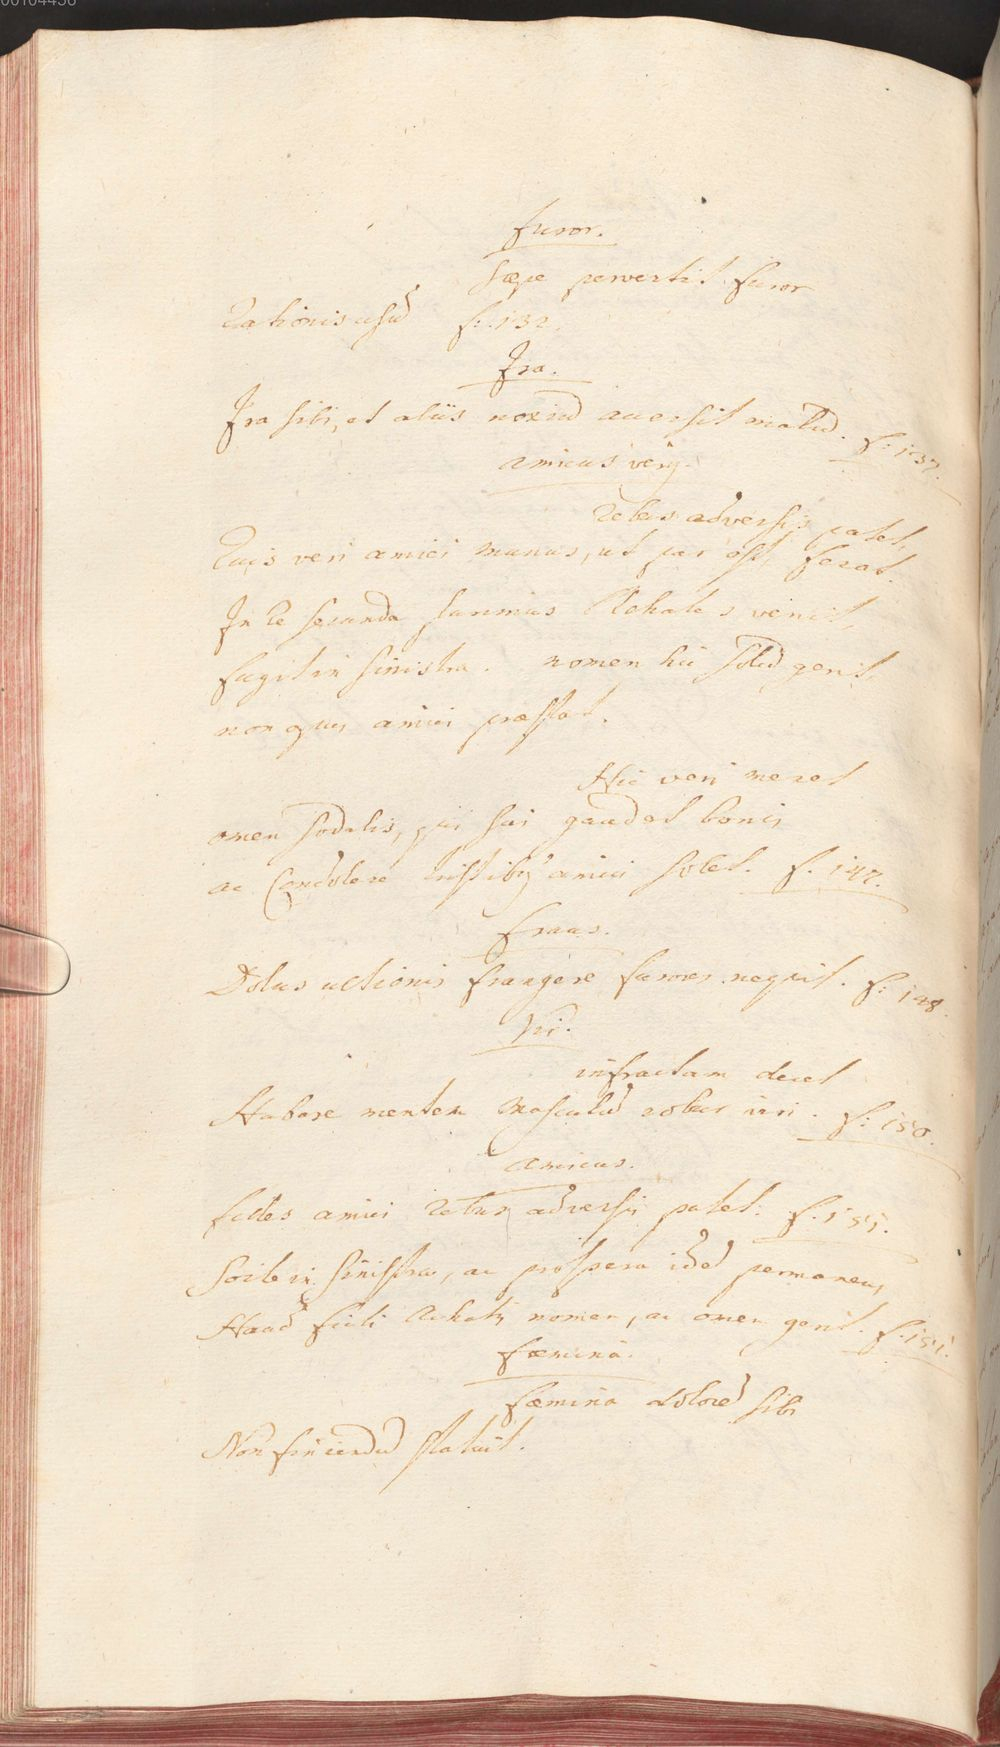 00104436
furor.
Sæpe pervertit furor
Rationis usū f. 132.
Ira.
Ira sibi, et aliis noxiū accersit malū. f. 137.
amicus verꝰ.
Rebus adversis patet,
Quis veri amici munus, ut par est, ferat.
In re secunda summus Achates venit,
fugit in sinistra. nomen hic solū gerit,
non opus amici præstat.
Hic veri meret
omen sodalis, qui sui gaudet bonis
ac condolere tristibꝰ amici solet. f. 147.
fraus.
Dolus ultionis frangere furores nequit. f. 148.
Viri.
infractam decet
Habere mentem masculū robur viri. f. 150.
amicus.
fides amici rebus adversis patet. f. 151.
Sorte in sinistra, ac prospera idē permanens,
Haud ficti Achatis nomen, ac omen gerit. f. 151.
fæmina.
fæmina dolorē sibi
Non finiendū statuit.